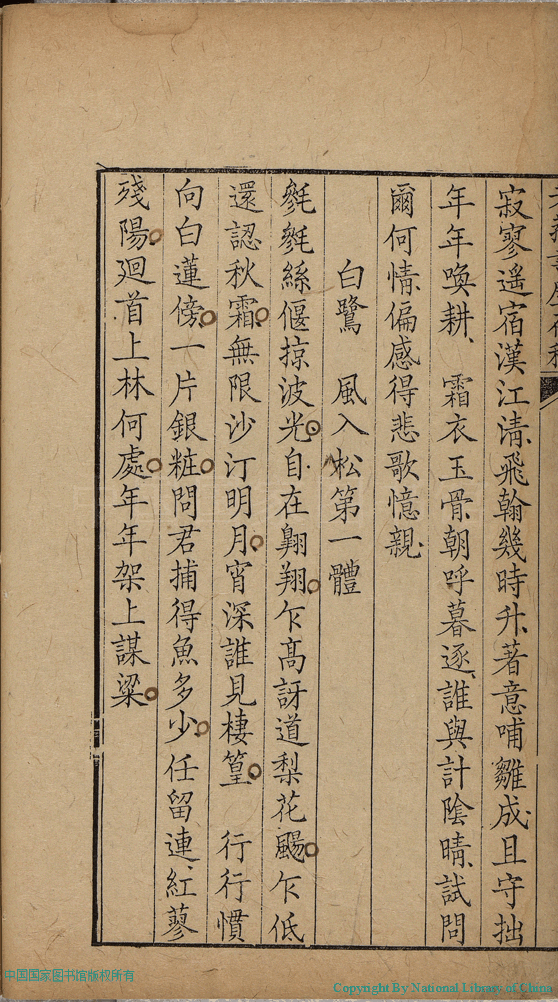 寂寥遥宿漢江清飛翰幾時升著意哺雛成且守拙
年年喚耕 霜衣玉骨朝呼暮逐誰與計陰晴試問
爾何情偏感得悲歌憶親
白鷺 風入松第一體
毿毿絲偃掠波光自在翺翔乍髙訝道梨花颺乍低
還認秋霜無限沙汀明月宵深誰見棲篁 行行慣
向白蓮傍一片銀粧問君捕得魚多少任留連紅蓼
殘陽廻首上林何處年年架上謀粱
中国国家图书馆版权所有
Copyright By National Library of China